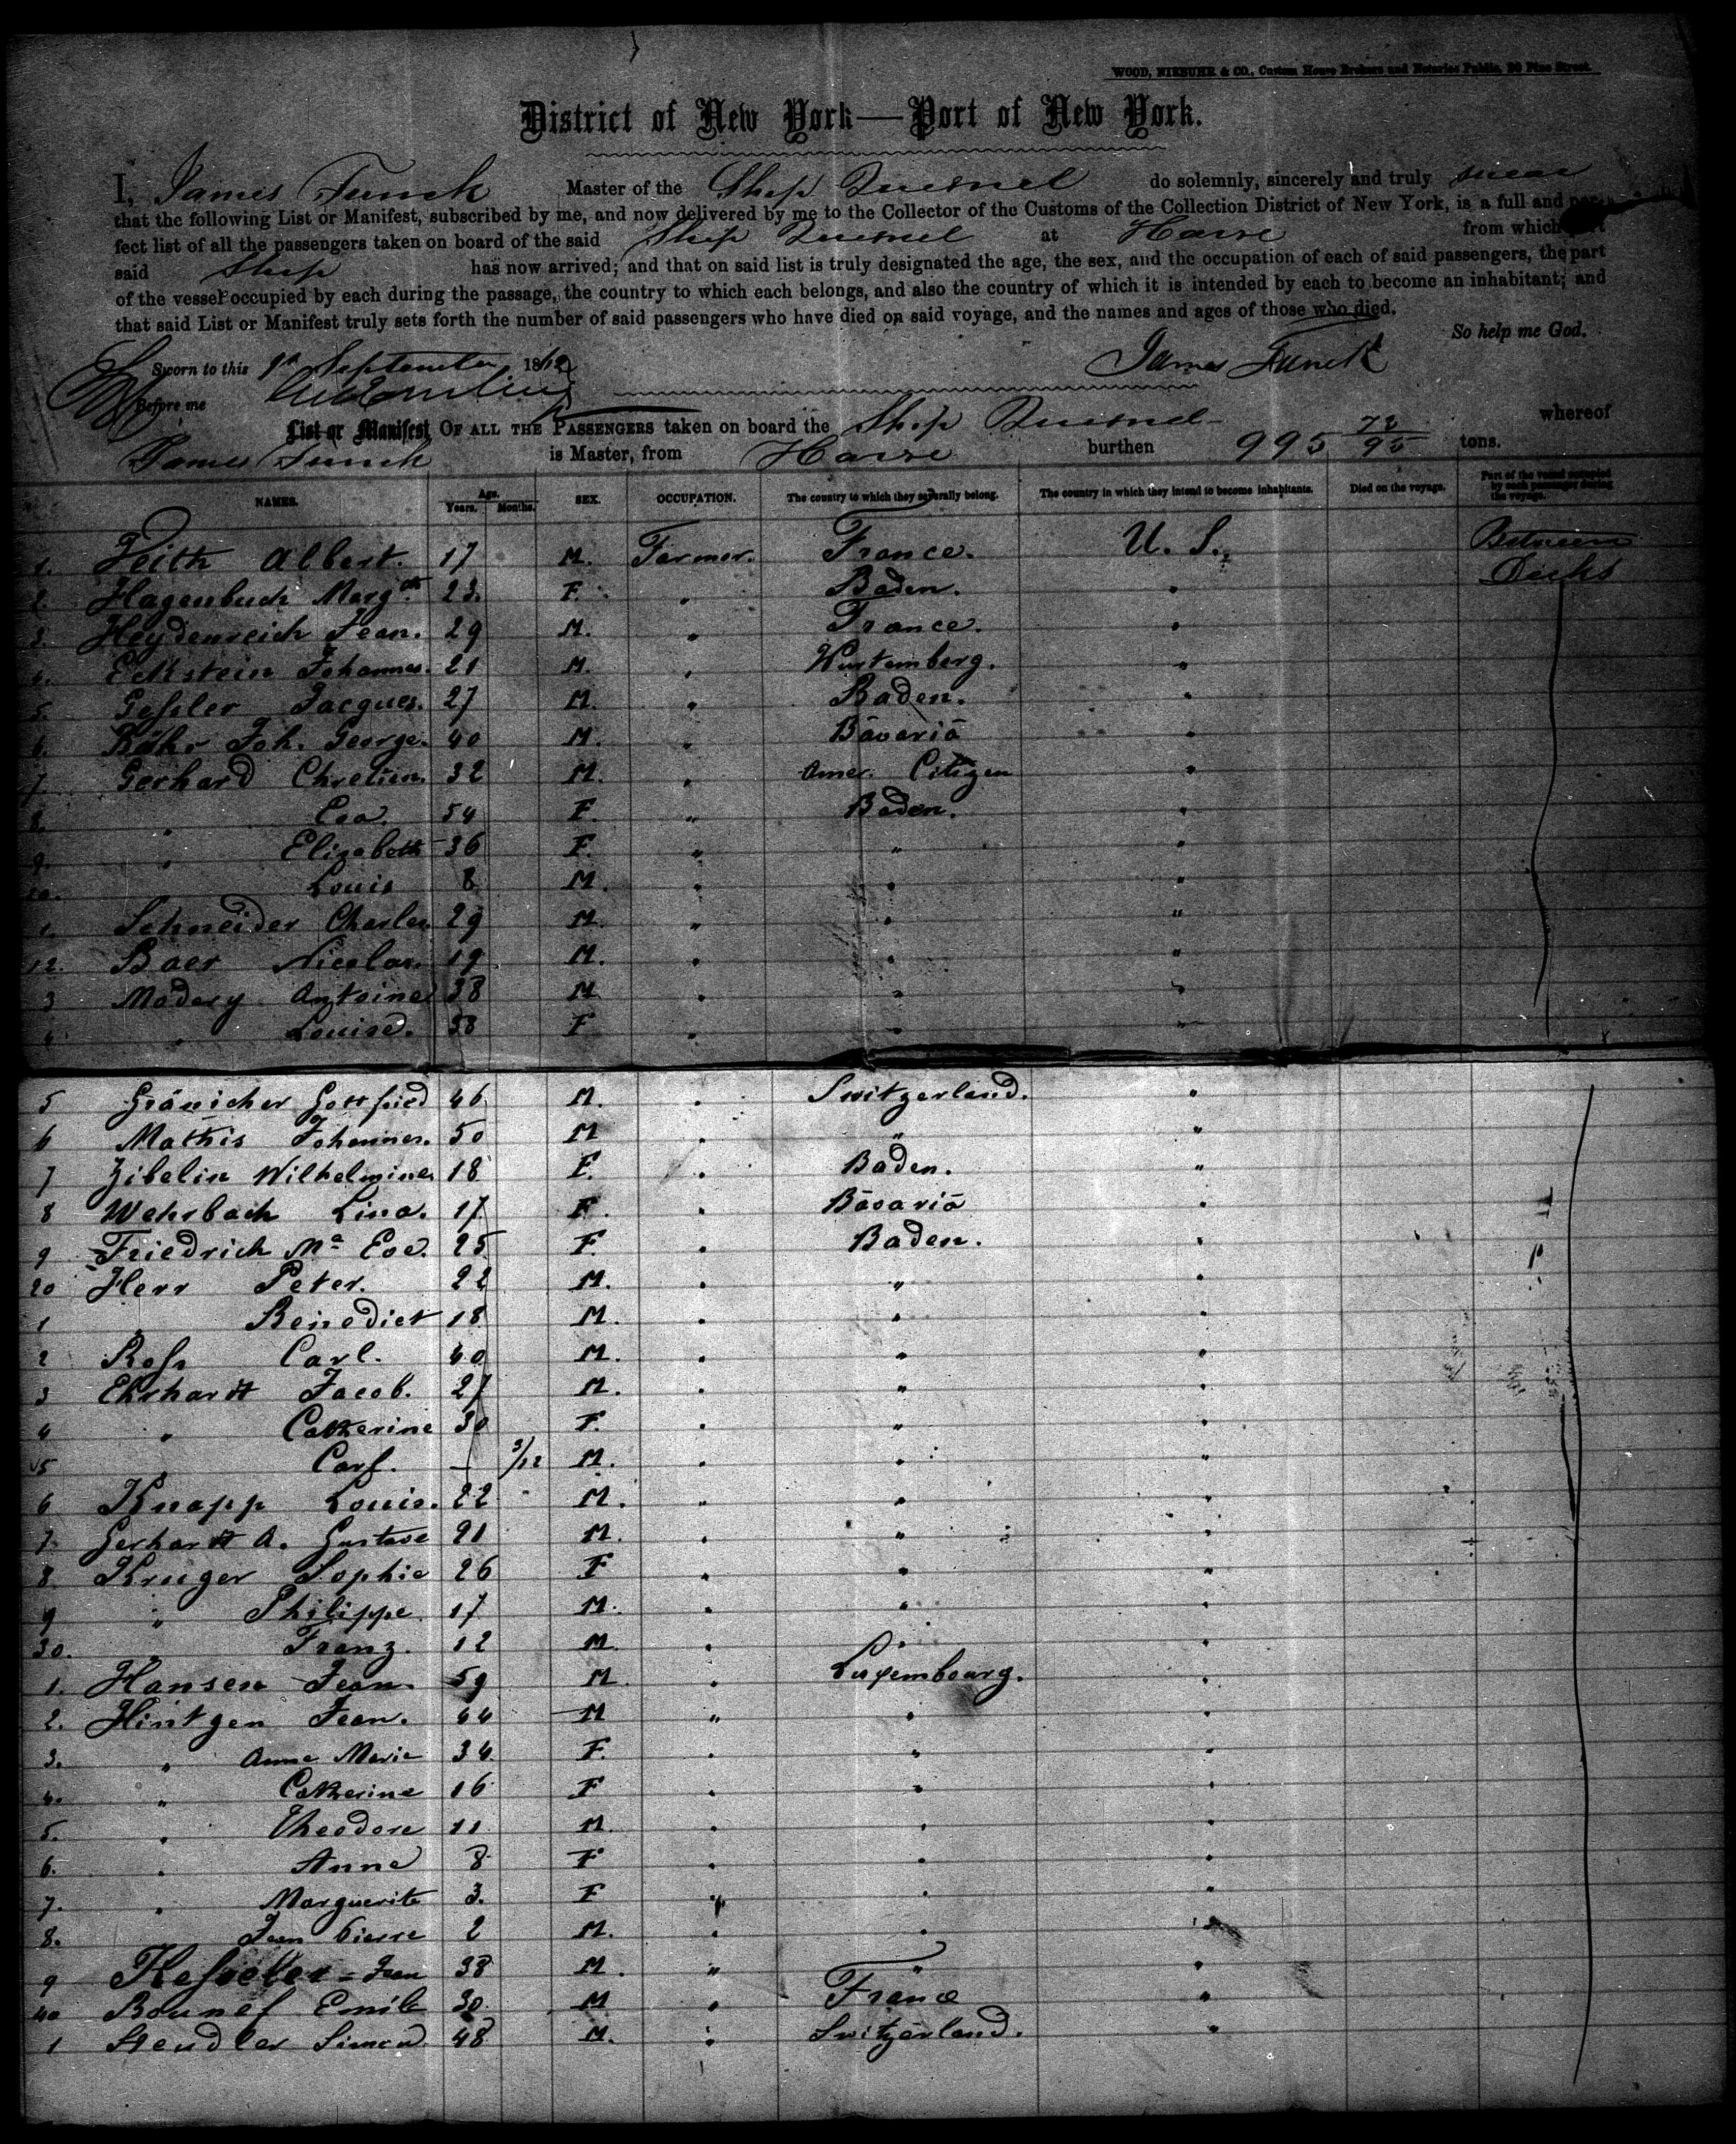 WOOD, NIEBUHR & CO., Custom House Brokers and Notaries Public, 20 Pine Street.
District of New York—Port of New York.
I, James Funck Master of the Ship Quesnel do solemnly, sincerely and truly swear
that the following List or Manifest, subscribed by me, and now delivered by me to the Collector of the Customs of the Collection District of New York, is a full and per-
fect list of all the passengers taken on board of the said Ship Quesnel at Havre from which port
said Ship has now arrived; and that on said list is truly designated the age, the sex, and the occupation of each of said passengers, the part
of the vessel occupied by each during the passage, the country to which each belongs, and also the country of which it is intended by each to become an inhabitant; and
that said List or Manifest truly sets forth the number of said passengers who have died on said voyage, and the names and ages of those who died.
So help me God.
Sworn to this September 186 James Funck
Before me
List or Manifest OF ALL THE PASSENGERS taken on board the Ship Quesnel whereof
James Funck is Master, from Havre burthen 995 72/95 tons.
NAMES. Age. Years. Months. SEX. OCCUPATION. The country to which they severally belong. The country in which they intend to become inhabitants. Died on the voyage. Part of the vessel occupied by each passenger during the voyage.
1. Veith Albert. 17 M. Farmer. France. U. S. Between Decks
2. Hagenbuch Margth 23. F. " Baden. "
3. Heydenreich Jean. 29 M. " France. "
4. Eckstein Johannes. 21 M. " Wurtemberg. "
5. Geßler Jacques. 27 M. " Baden. "
6. Bähr Joh. George. 40 M. " Bavaria "
7. Gerhard Chretien. 32 M. " Amer. Citizen "
8. " Eva. 54 F. " Baden. "
9. " Elizabeth 36 F. " " "
10. " Louis 8 M. " " "
1. Schneider Charles 29 M. " " "
12. Baer Nicolas. 19 M. " " "
3 Madery Antoine 38 M " " "
4. " Louise. 38 F " " "
5 Gränicher Gottfried 46 M. " Switzerland. "
6 Mathis Johannes. 50 M " " "
7 Zibelin Wilhelmine 18 F. " Baden. "
8 Wehrbach Lina. 17 F. " Bavaria "
9 Friedrich Ma Eve. 25 F. " Baden. "
20 Herr Peter. 22 M. " " "
1 " Benedict 18 M. " " "
2 Roß Carl. 40 M. " " "
3 Ehrhardt Jacob. 27 M. " " "
4 " Catherine 30 F. " " "
5 " Carl. — 3/12 M. " " "
6 Knapp Louis. 22 M. " " "
7 Gerhardt A. Gustave 21 M. " " "
8 Kruger Sophie 26 F " " "
9 " Philippe 17 M. " " "
30. " Franz. 12 M. " " "
1. Hansen Jean. 59 M. " Luxembourg. "
2. Hintgen Jean. 44 M " " "
3. " Anne Marie 34 F. " " "
4. " Catherine 16 F " " "
5. " Theodore 11 M. " " "
6. " Anne 8 F " " "
7. " Marguerite 3. F " " "
8. " Jean Pierre 2 M. " " "
9 Keßeler = Jean 38 M. " " "
40 Bounef Emile 30. M " France "
1 Steudler Simon. 48 M. " Switzerland. "